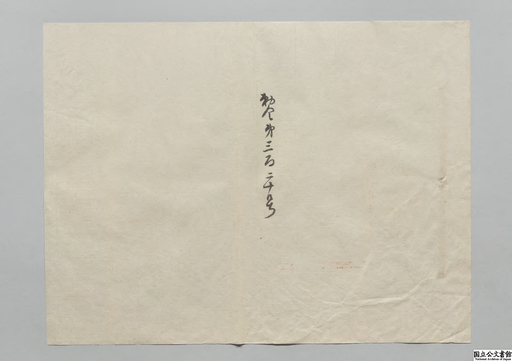 勅令第三百二十号
国立公文書館
National Archives of Japan